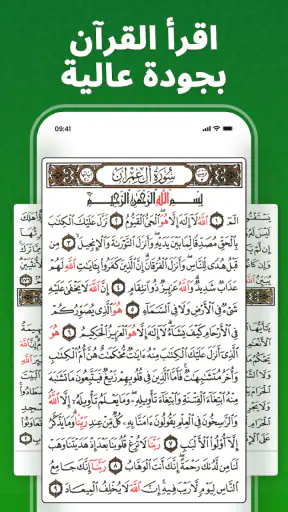 اقرأ القرآن
بجودة عالية
09:41
سُورَةُ آلِ عِمْرَان
بِسْمِ ٱللَّهِ ٱلرَّحْمَٰنِ ٱلرَّحِيمِ
الٓمٓ ١ ٱللَّهُ لَآ إِلَٰهَ إِلَّا هُوَ ٱلْحَىُّ ٱلْقَيُّومُ ٢ نَزَّلَ عَلَيْكَ ٱلْكِتَٰبَ
بِٱلْحَقِّ مُصَدِّقًا لِّمَا بَيْنَ يَدَيْهِ وَأَنزَلَ ٱلتَّوْرَىٰةَ وَٱلْإِنجِيلَ ٣ مِن
قَبْلُ هُدًى لِّلنَّاسِ وَأَنزَلَ ٱلْفُرْقَانَ إِنَّ ٱلَّذِينَ كَفَرُوا۟ بِـَٔايَٰتِ ٱللَّهِ لَهُمْ
عَذَابٌ شَدِيدٌ وَٱللَّهُ عَزِيزٌ ذُو ٱنتِقَامٍ ٤ إِنَّ ٱللَّهَ لَا يَخْفَىٰ عَلَيْهِ
شَىْءٌ فِى ٱلْأَرْضِ وَلَا فِى ٱلسَّمَآءِ ٥ هُوَ ٱلَّذِى يُصَوِّرُكُمْ
فِى ٱلْأَرْحَامِ كَيْفَ يَشَآءُ لَآ إِلَٰهَ إِلَّا هُوَ ٱلْعَزِيزُ ٱلْحَكِيمُ ٦ هُوَ
ٱلَّذِىٓ أَنزَلَ عَلَيْكَ ٱلْكِتَٰبَ مِنْهُ ءَايَٰتٌ مُّحْكَمَٰتٌ هُنَّ أُمُّ ٱلْكِتَٰبِ
وَأُخَرُ مُتَشَٰبِهَٰتٌ فَأَمَّا ٱلَّذِينَ فِى قُلُوبِهِمْ زَيْغٌ فَيَتَّبِعُونَ مَا تَشَٰبَهَ
مِنْهُ ٱبْتِغَآءَ ٱلْفِتْنَةِ وَٱبْتِغَآءَ تَأْوِيلِهِۦ وَمَا يَعْلَمُ تَأْوِيلَهُۥٓ إِلَّا ٱللَّهُ
وَٱلرَّٰسِخُونَ فِى ٱلْعِلْمِ يَقُولُونَ ءَامَنَّا بِهِۦ كُلٌّ مِّنْ عِندِ رَبِّنَا وَمَا يَذَّكَّرُ
إِلَّآ أُو۟لُوا۟ ٱلْأَلْبَٰبِ ٧ رَبَّنَا لَا تُزِغْ قُلُوبَنَا بَعْدَ إِذْ هَدَيْتَنَا وَهَبْ
لَنَا مِن لَّدُنكَ رَحْمَةً إِنَّكَ أَنتَ ٱلْوَهَّابُ ٨ رَبَّنَآ إِنَّكَ جَامِعُ
ٱلنَّاسِ لِيَوْمٍ لَّا رَيْبَ فِيهِ إِنَّ ٱللَّهَ لَا يُخْلِفُ ٱلْمِيعَادَ ٩